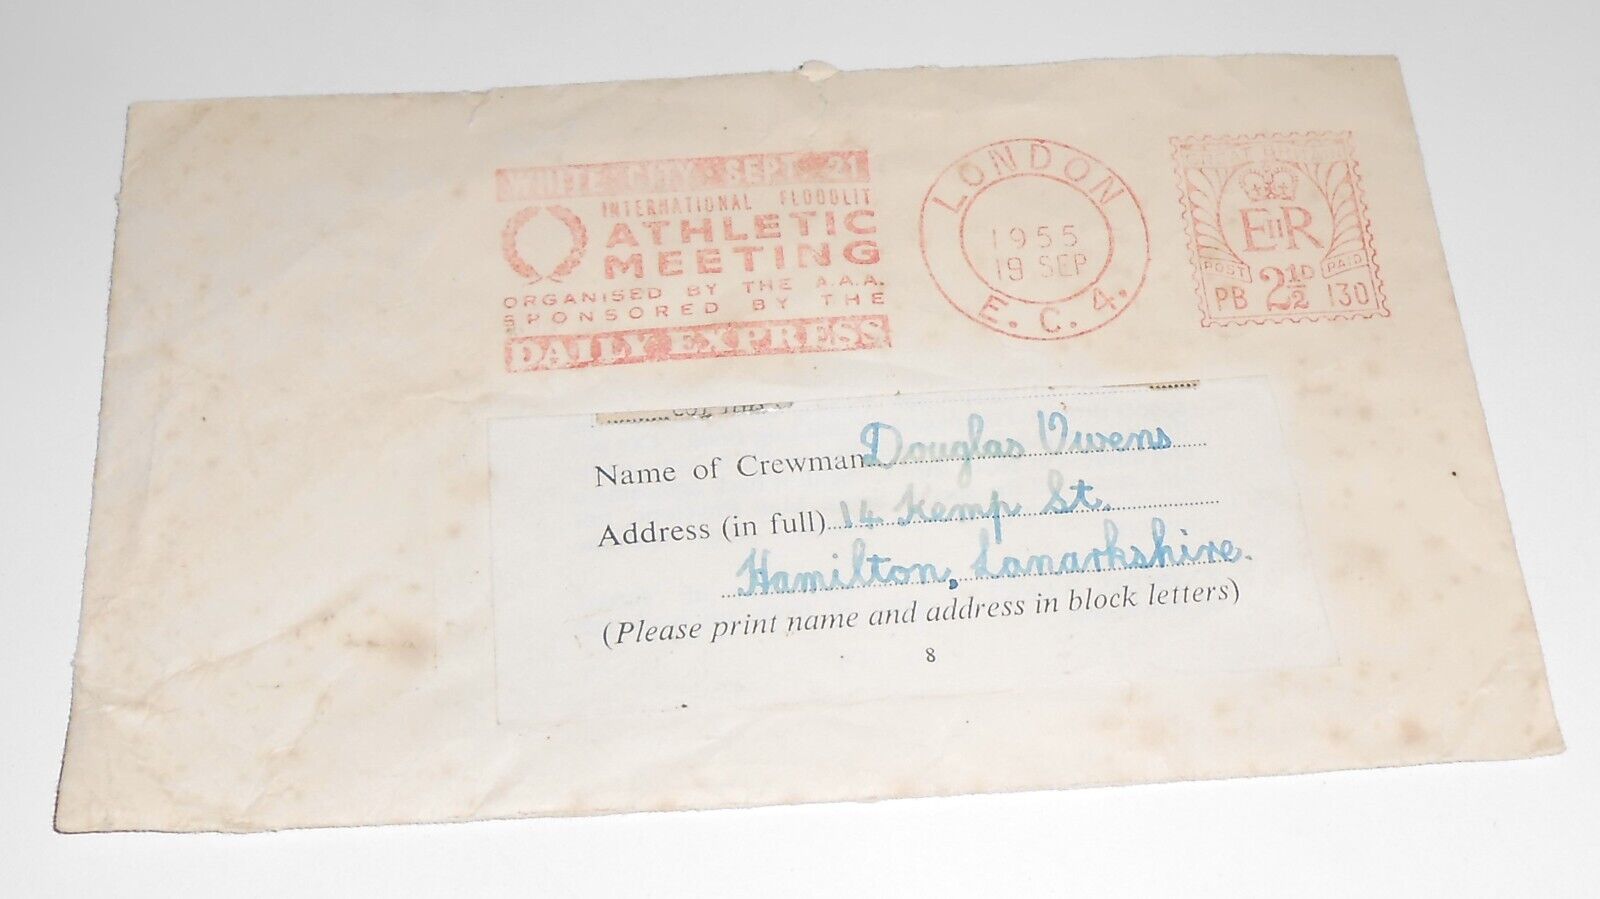 WHITE CITY SEPT. 21
INTERNATIONAL FLOODLIT
ATHLETIC
MEETING
ORGANISED BY THE A.A.A.
SPONSORED BY THE
DAILY EXPRESS
LONDON
1955
19 SEP
E. C. 4.
GREAT BRITAIN
EIIR
POST PAID
PB 2½D 130
Name of Crewman Douglas Owens
Address (in full) 14 Kemp St.
Hamilton, Lanarkshire.
(Please print name and address in block letters)
8